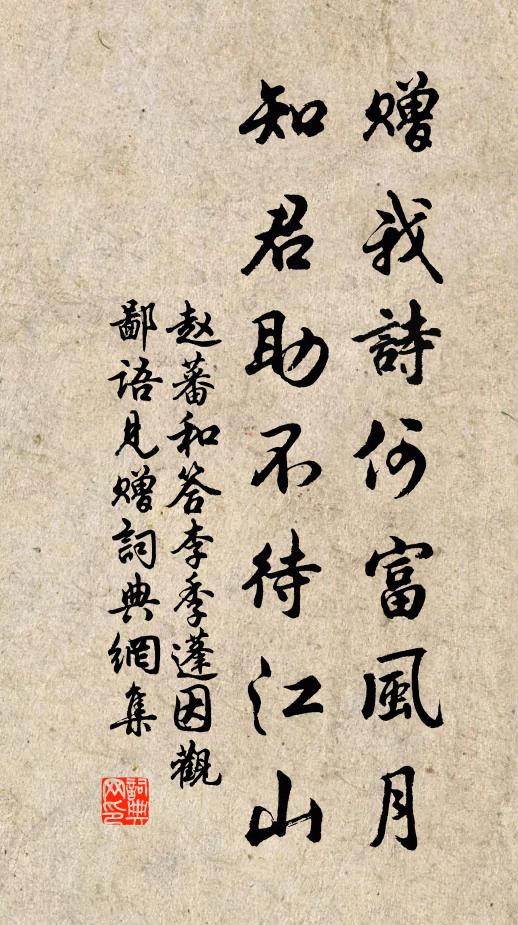 赠我詩何富風月
知君助不待江山
赵蕃和答李季蓬因觀
鄙语见赠詞典網集
詞典
网印